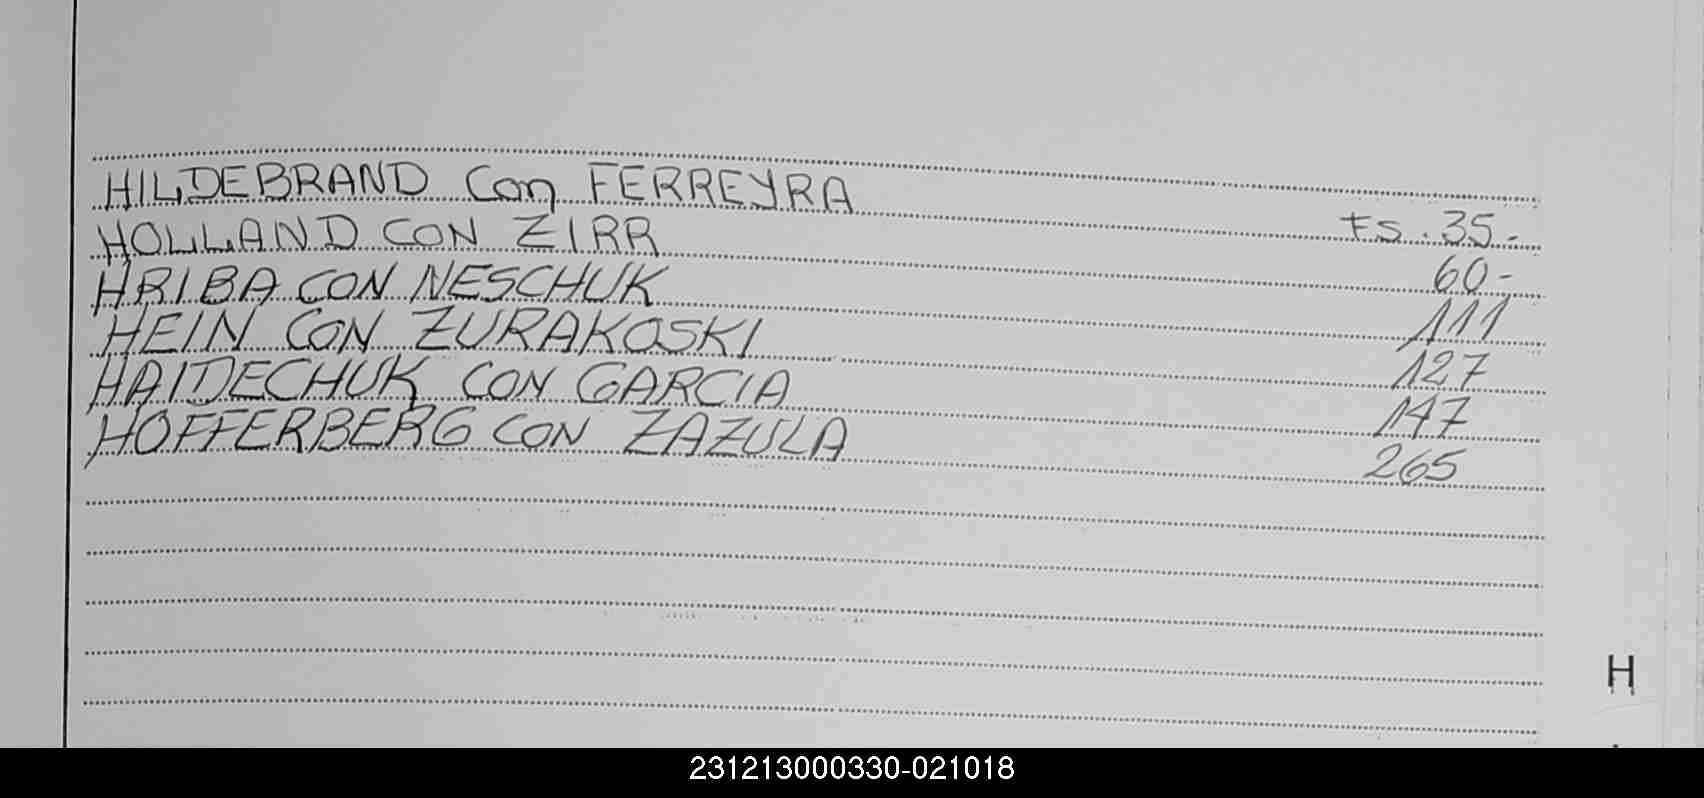 HILDEBRAND Con FERREYRA Fs. 35.-
HOLLAND CON ZIRR 60-
HRIBA CON NESCHUK 111
HEIN CON ZURAKOSKI 127
HAIDECHUK CON GARCIA 147
HOFFERBERG CON ZAZULA 265
H
231213000330-021018